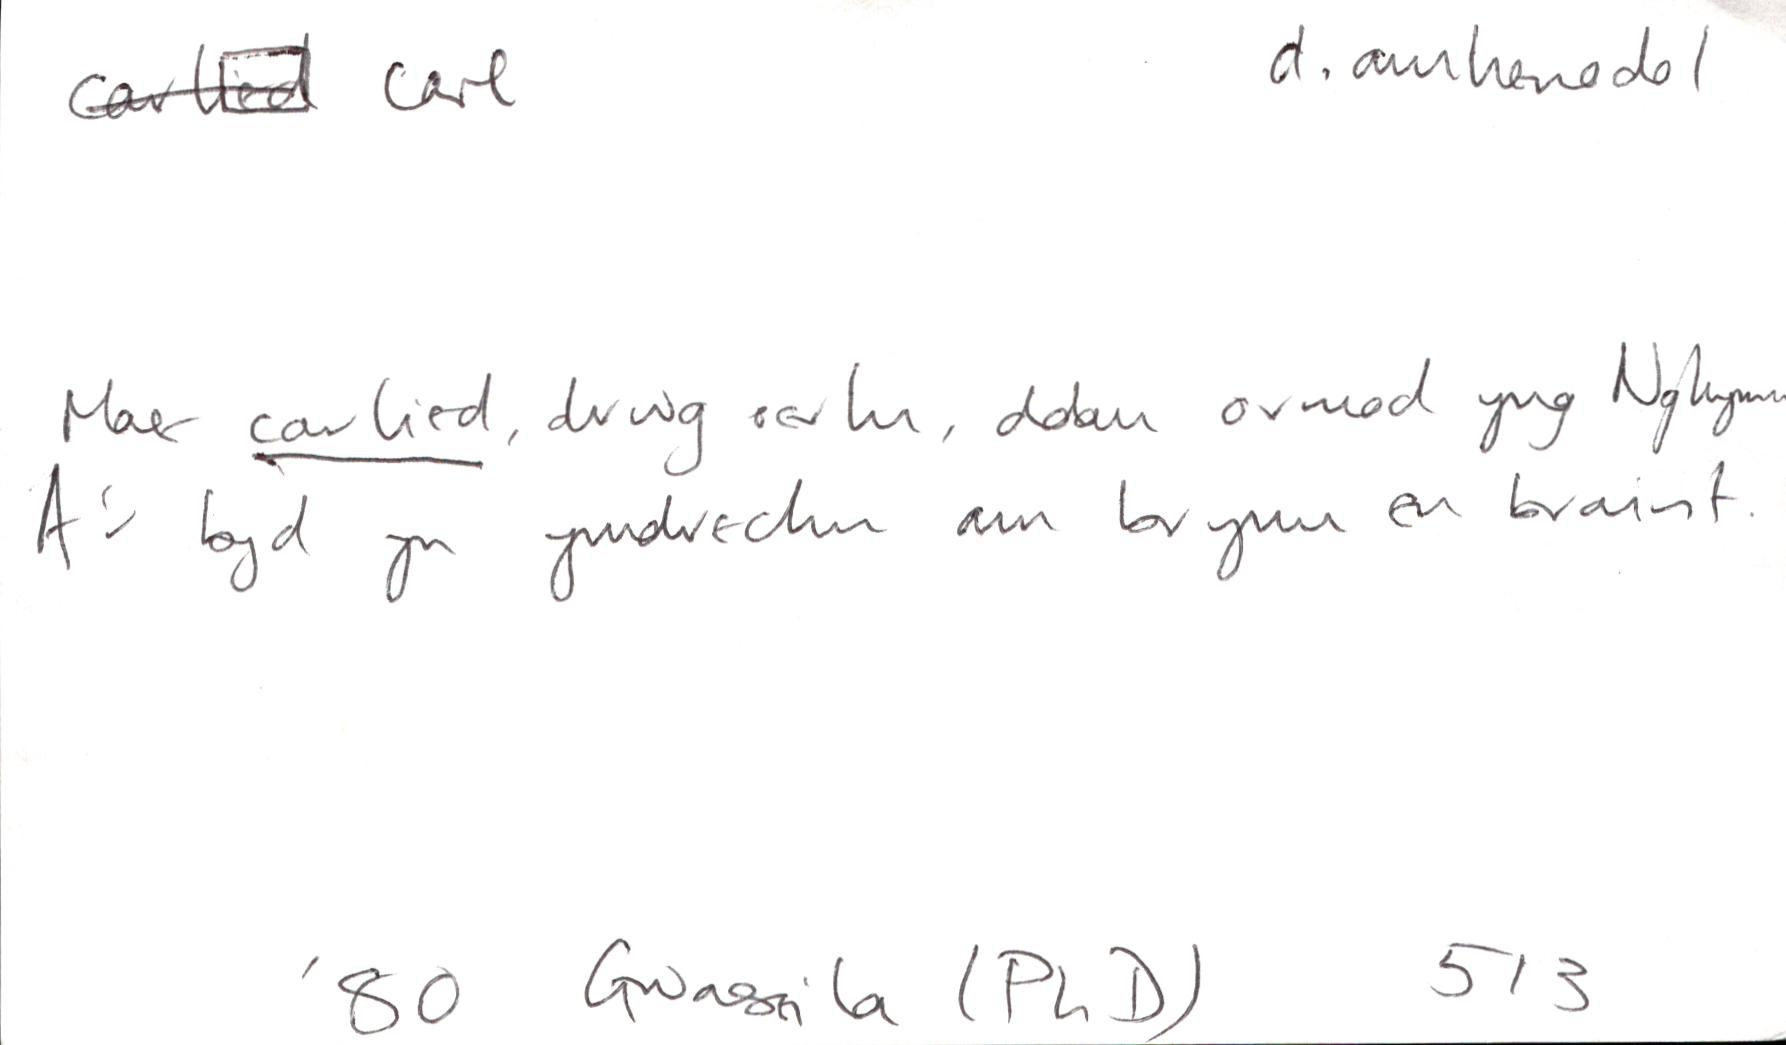 carlied carl d. amhenodol
Mae carlied, drwg oerlu, ddau ormod yng Nghymru
A'i byd yn ymdrechu am brynu en braint.
'80 Gwassila (PhD) 513